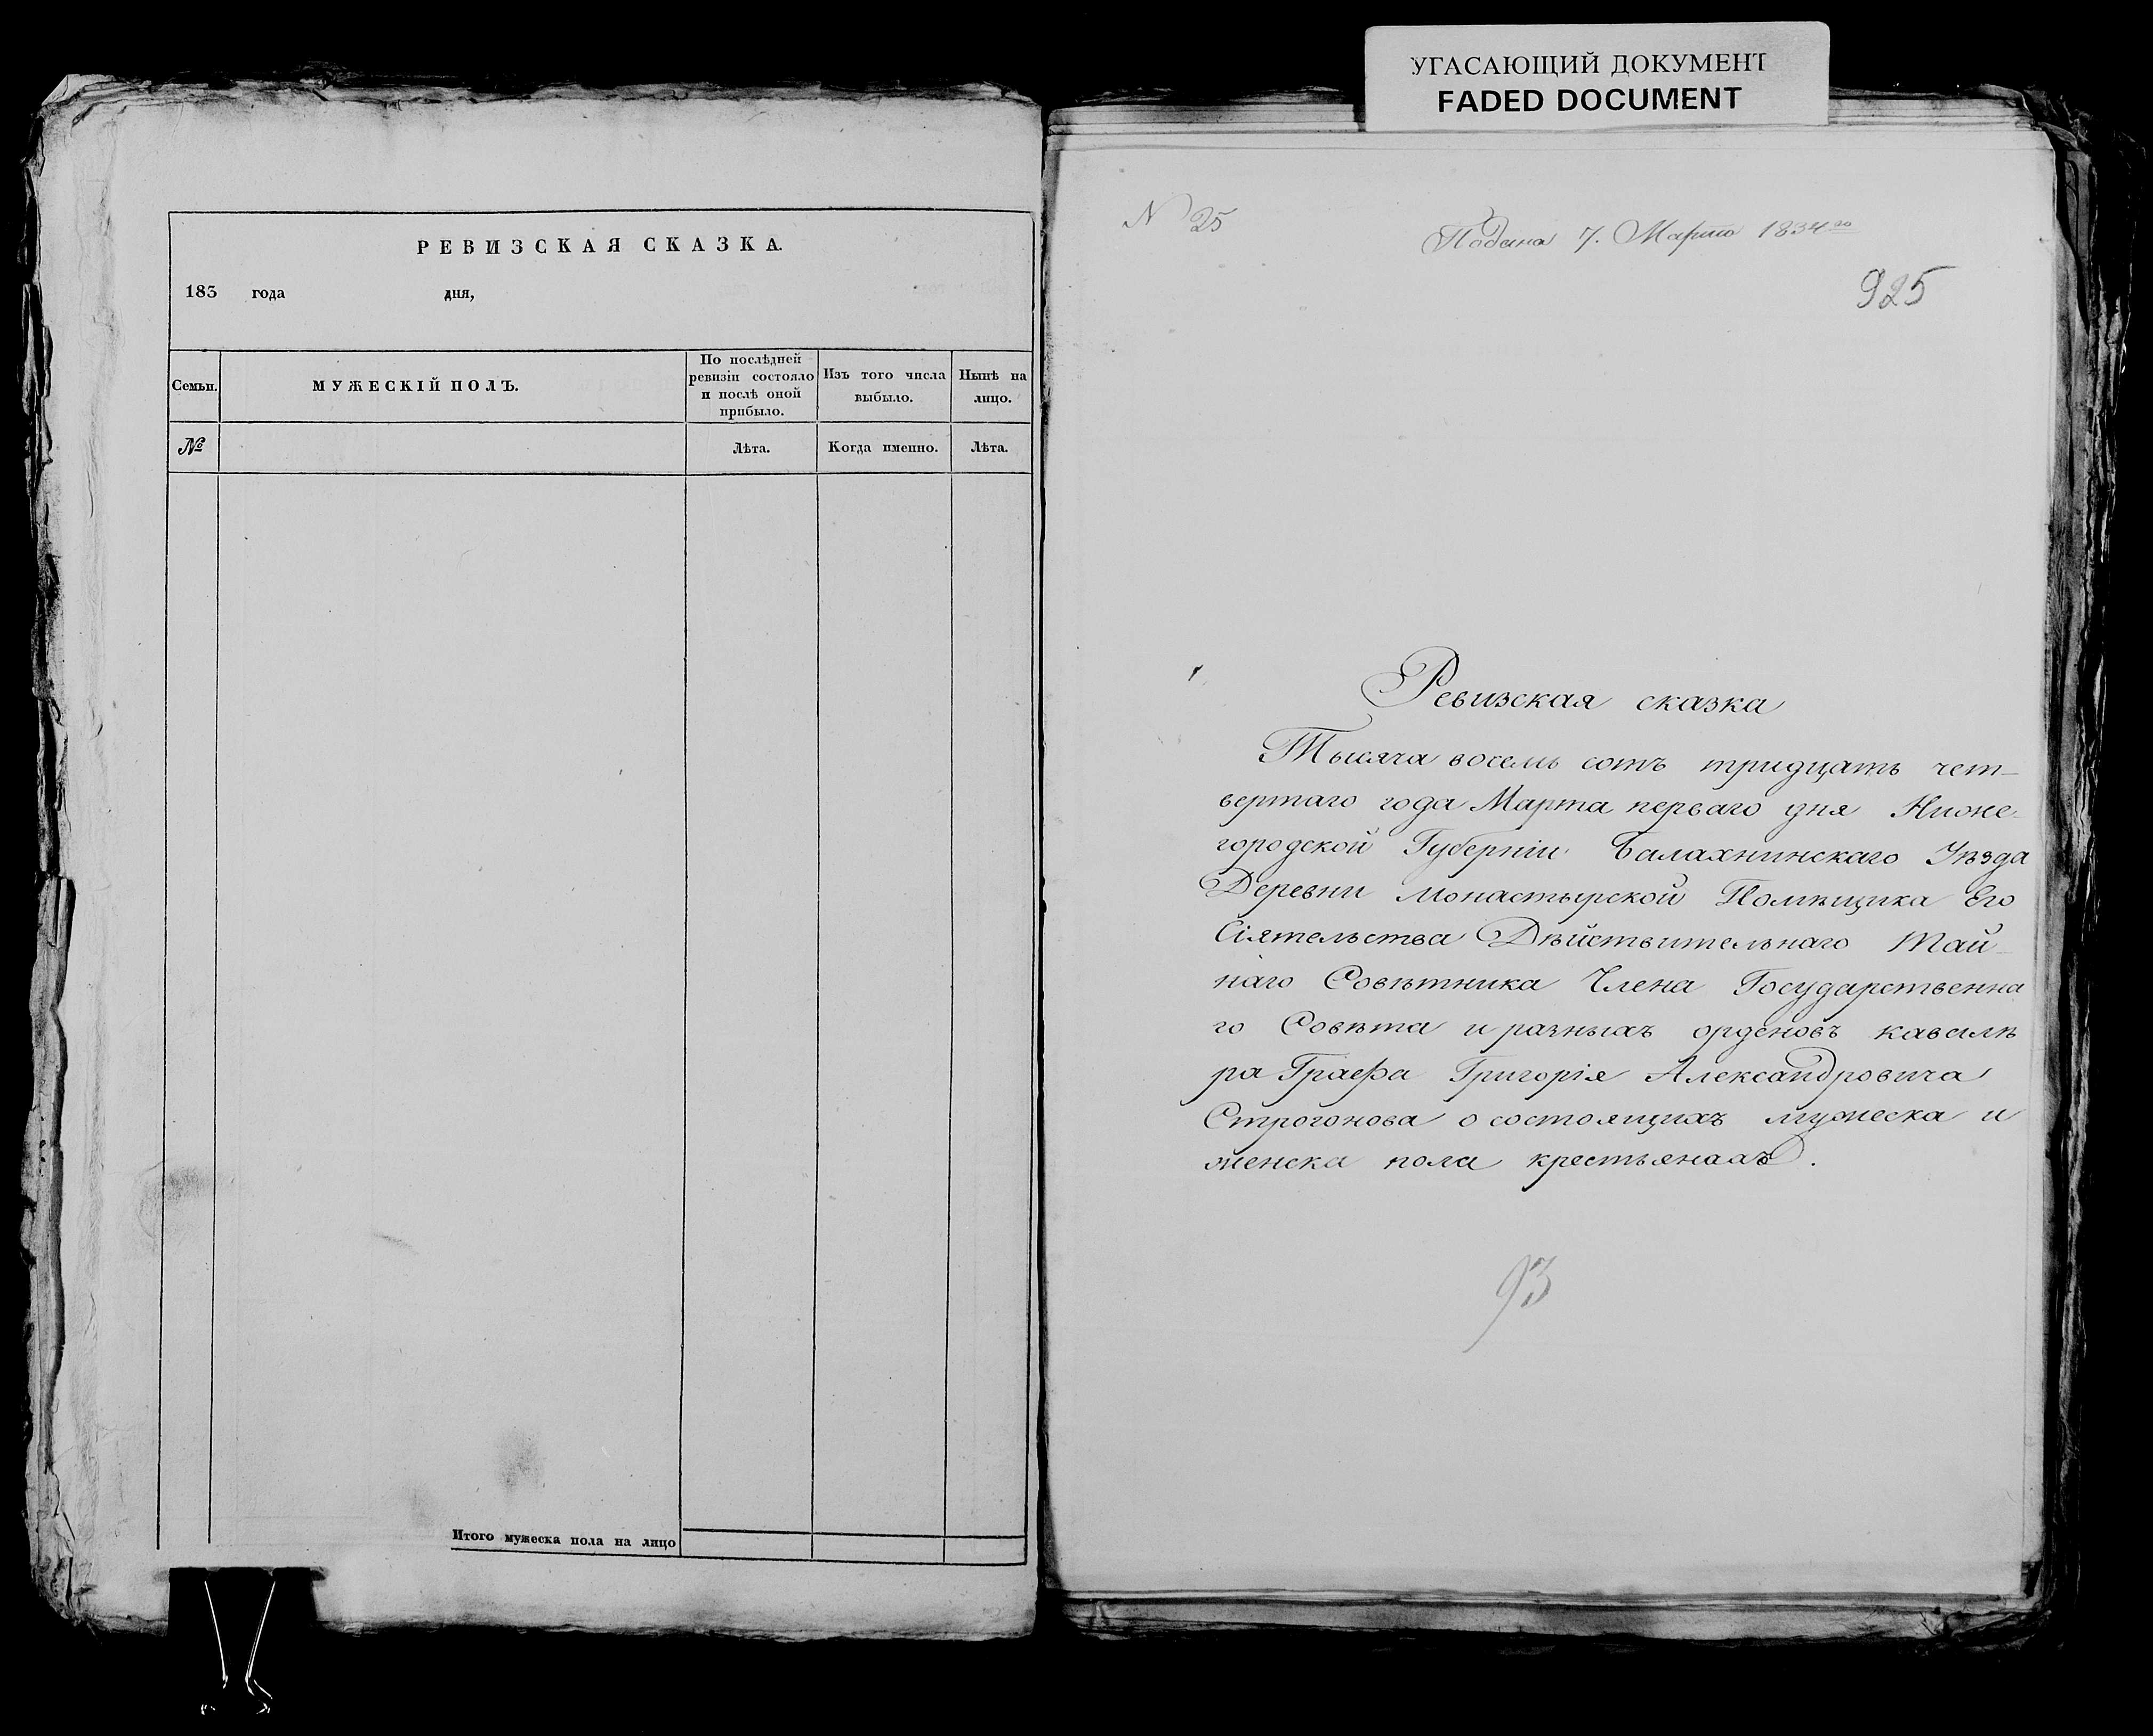 УГАСАЮЩИЙ ДОКУМЕНТ
FADED DOCUMENT
РЕВИЗСКАЯ СКАЗКА.
183 года дня,
Семьи.
МУЖЕСКІЙ ПОЛЪ.
По послѣдней
ревизіи состояло
и послѣ оной
прибыло.
Изъ того числа
выбыло.
Нынѣ на
лицо.
№
Лѣта.
Когда именно.
Лѣта.
Итого мужеска пола на лицо
N 25
Подана 7. Марта 1834го
925
Ревизская сказка
Тысяча восемь сотъ тридцать чет-
вертаго года Марта перваго дня Ниже-
городской Губерніи Балахнинскаго Уѣзда
Деревни Монастырской Помѣщика Его
Сіятельства Дѣйствительнаго Тай-
наго Совѣтника Члена Государственна
го Совѣта и разныхъ орденовъ кавалѣ
ра Графа Григорія Александровича
Строгонова о состоящихъ мужеска и
женска пола крестьянахъ.
93